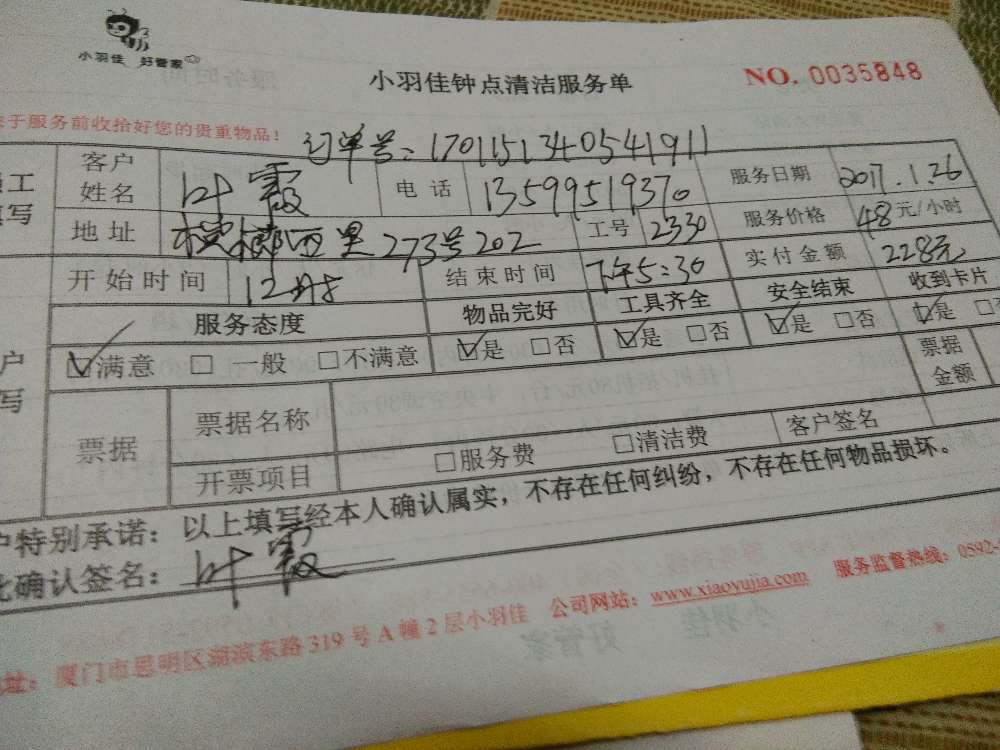 小羽佳 好管家
小羽佳钟点清洁服务单
NO. 0035848
于服务前收拾好您的贵重物品!
订单号:1701151340541911
工 客户姓名 叶霞 电话 13599519370 服务日期 2017.1.26
写 地址 西里273号202 工号 2330 服务价格 48元/小时
开始时间 12 结束时间 下午5:30 实付金额 228元
服务态度 物品完好 工具齐全 安全结束 收到卡片
户 ☑满意 □一般 □不满意 ☑是 □否 ☑是 □否 ☑是 □否 ☑是 □
写 票据 票据名称 票据金额
开票项目 □服务费 □清洁费 客户签名
户特别承诺:以上填写经本人确认属实,不存在任何纠纷,不存在任何物品损坏。
此确认签名:叶霞
址:厦门市思明区湖滨东路319号A幢2层小羽佳 公司网站:www.xiaoyujia.com 服务监督热线:0592-